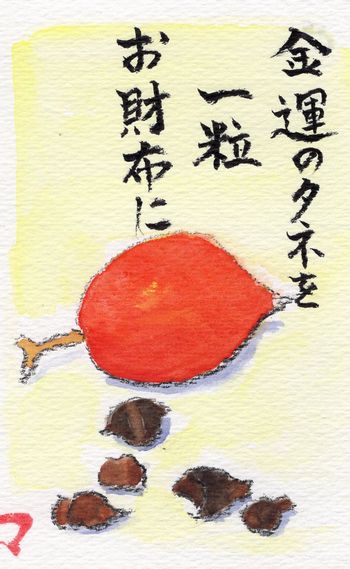 金運のタネを
一粒
お財布に
マ